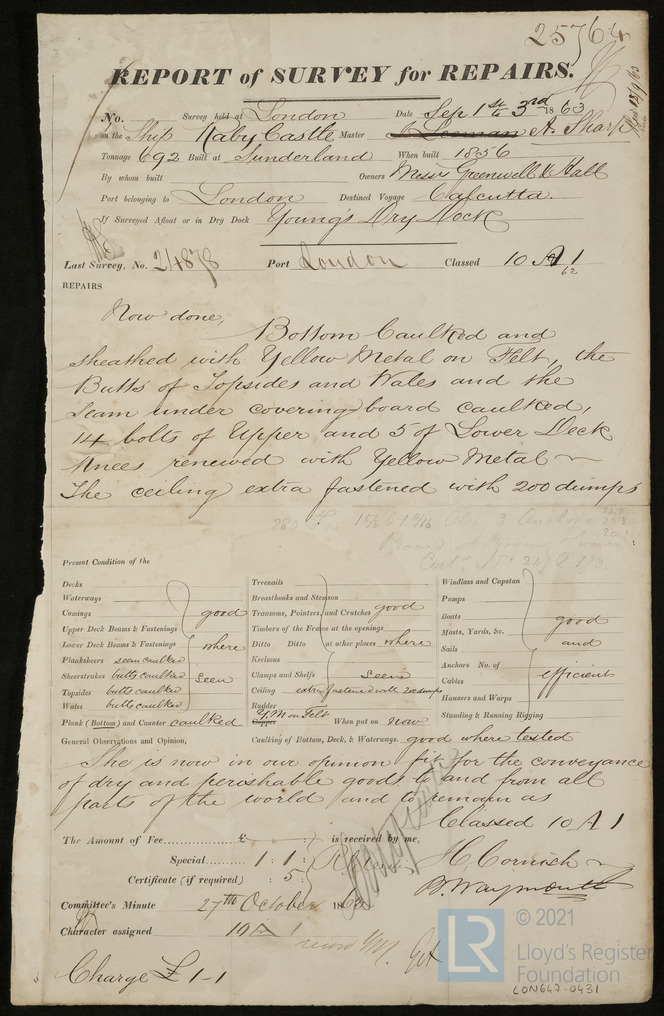 25764
REPORT of SURVEY for REPAIRS.
No. Survey held at London Date Sep 1st to 3rd 1863
on the Ship Raby Castle Master A. Sharp
Tonnage 692 Built at Sunderland When built 1856
By whom built Owners Messrs Greenwell & Hall
Port belonging to London Destined Voyage Calcutta.
If Surveyed Afloat or in Dry Dock Young's Dry Dock
Last Survey, No. 24878 Port London Classed 10 A 1
62
REPAIRS
Now done, Bottom Caulked and
sheathed with Yellow Metal on Felt, the
Butts of Topsides and Wales and the
Seam under covering board caulked,
14 bolts of Upper and 5 of Lower Deck
Knees renewed with Yellow Metal
The ceiling extra fastened with 200 dumps
Present Condition of the
Decks
Waterways
Comings good
Upper Deck Beams & Fastenings
Lower Deck Beams & Fastenings where
Planksheers seam caulked
Sheerstrakes butts caulked seen
Topsides butts caulked
Wales butts caulked
Plank (Bottom) and Counter caulked
Treenails
Breasthooks and Stemson
Transoms, Pointers, and Crutches good
Timbers of the Frame at the openings
Ditto Ditto at other places where
Keelsons
Clamps and Shelfs seen
Ceiling extra fastened with 200 dumps
Rudder
Copper Y.M on Felt When put on now
Windlass and Capstan
Pumps
Boats good
Masts, Yards, &c.
Sails and
Anchors No. of
Cables efficient
Hawsers and Warps
Standing & Running Rigging
General Observations and Opinion, Caulking of Bottom, Deck, & Waterways. good where tested
She is now in our opinion fit for the conveyance
of dry and perishable goods to and from all
parts of the world and to remain as
Classed 10 A 1
The Amount of Fee £ is received by me,
Special 1 : 1 :
H Cornish
Certificate (if required) : 5 :
B. Waymouth
Committee's Minute 27th October 1863
Character assigned 10 A 1
Charge £ 1-1
LR
© 2021
Lloyd's Register
Foundation
LON647-0431